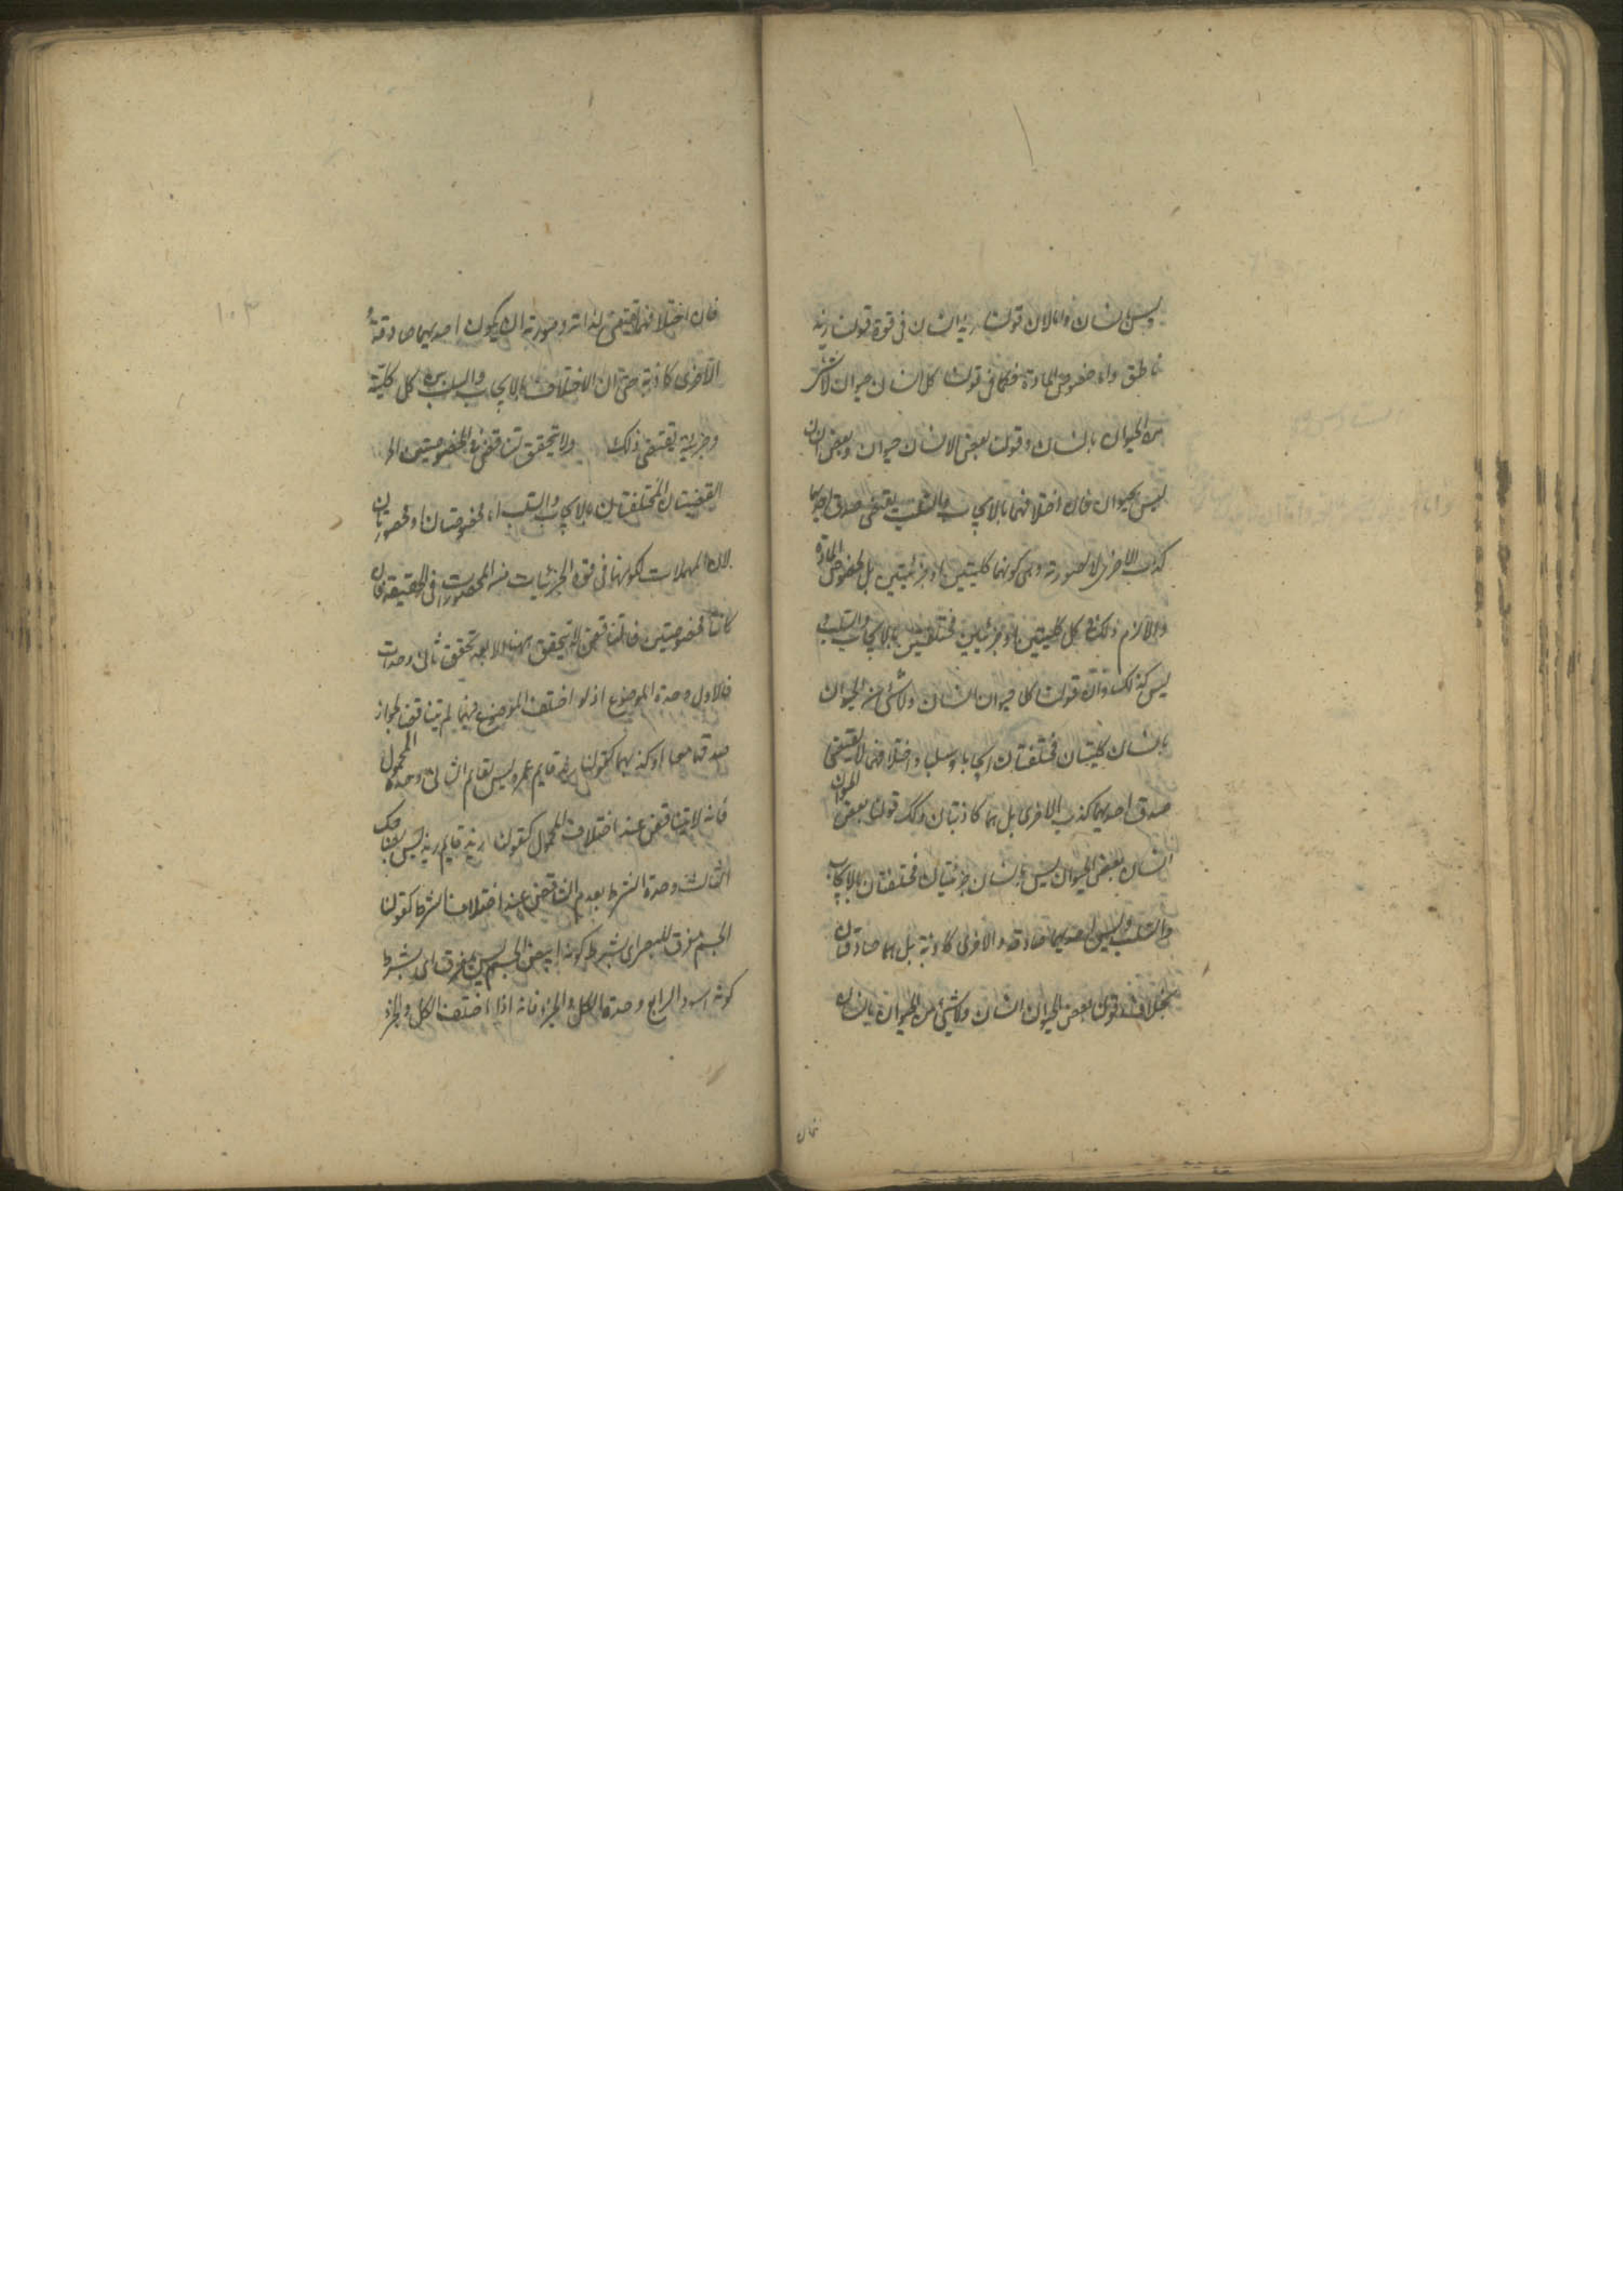 وليس بانسان واما لان قولنا زيد انسان فى قوة قولنا زيد
ناطق واما خصوص المادة فكما فى قولنا كل انسان حيوان لا شئ
من الحيوان بانسان وقولنا بعض الانسان حيوان وبعض الانسان
ليس بحيوان فان اختلافهما بالايجاب والسلب يقتضى صدق احديهما
كذب الاخرى لا لصورته وهى كونهما كليتين او جزئيتين بل لخصوص المادة
والا لزم ذلك فى كل كليتين او جزئيتين مختلفتين بالايجاب والسلب و
ليس كذلك فان قولنا كل حيوان انسان ولا شئ من الحيوان
بانسان كليتان مختلفتان ايجابا وسلبا واختلافهما لا يقتضى
صدق احديهما كذب الاخرى بل هما كاذبتان وكك قولنا بعض الحيوان
انسان بعض الحيوان ليس بانسان جزئيتان مختلفتان بالايجاب
والسلب وليس احديهما صادقة والاخرى كاذبة بل هما صادقتان
بخلاف قولنا بعض الحيوان انسان ولا شئ من الحيوان بانسان
فان
١٠٣
فان اختلافهما يقتضى لذاته وصورته ان يكون احديهما صادقة و
الاخرى كاذبة حتى ان الاختلاف بالايجاب والسلب بين كل كلية
وجزئية يقتضى ذلك ولا يتحقق تناقض فى المخصوصتين الخ
القضيتان المختلفتان بالايجاب والسلب اما مخصوصتان او محصورتان
لان المهملات لكونها فى قوة الجزئيات من المحصورات فى الحقيقة فان
كانتا مخصوصتين فالتناقض لا يتحقق بينهما الا بعد تحقق ثمانى وحدات
فالاول وحدة الموضوع اذ لو اختلف الموضوع فيهما لم يتناقض لجواز
صدقهما معا او كذبهما كقولنا زيد قايم عمرو ليس بقايم الثانى وحدة المحمول
فانه لا تناقض عند اختلاف المحمول كقولنا زيد قايم زيد ليس بضاحك
الثالث وحدة الشرط لعدم التناقض عند اختلاف الشرط كقولنا
الجسم مفرق للبصر اى بشرط كونه ابيض الجسم ليس بمفرق اى بشرط
كونه اسود الرابع وحدة الكل والجزء فانه اذا اختلف الكل والجزء